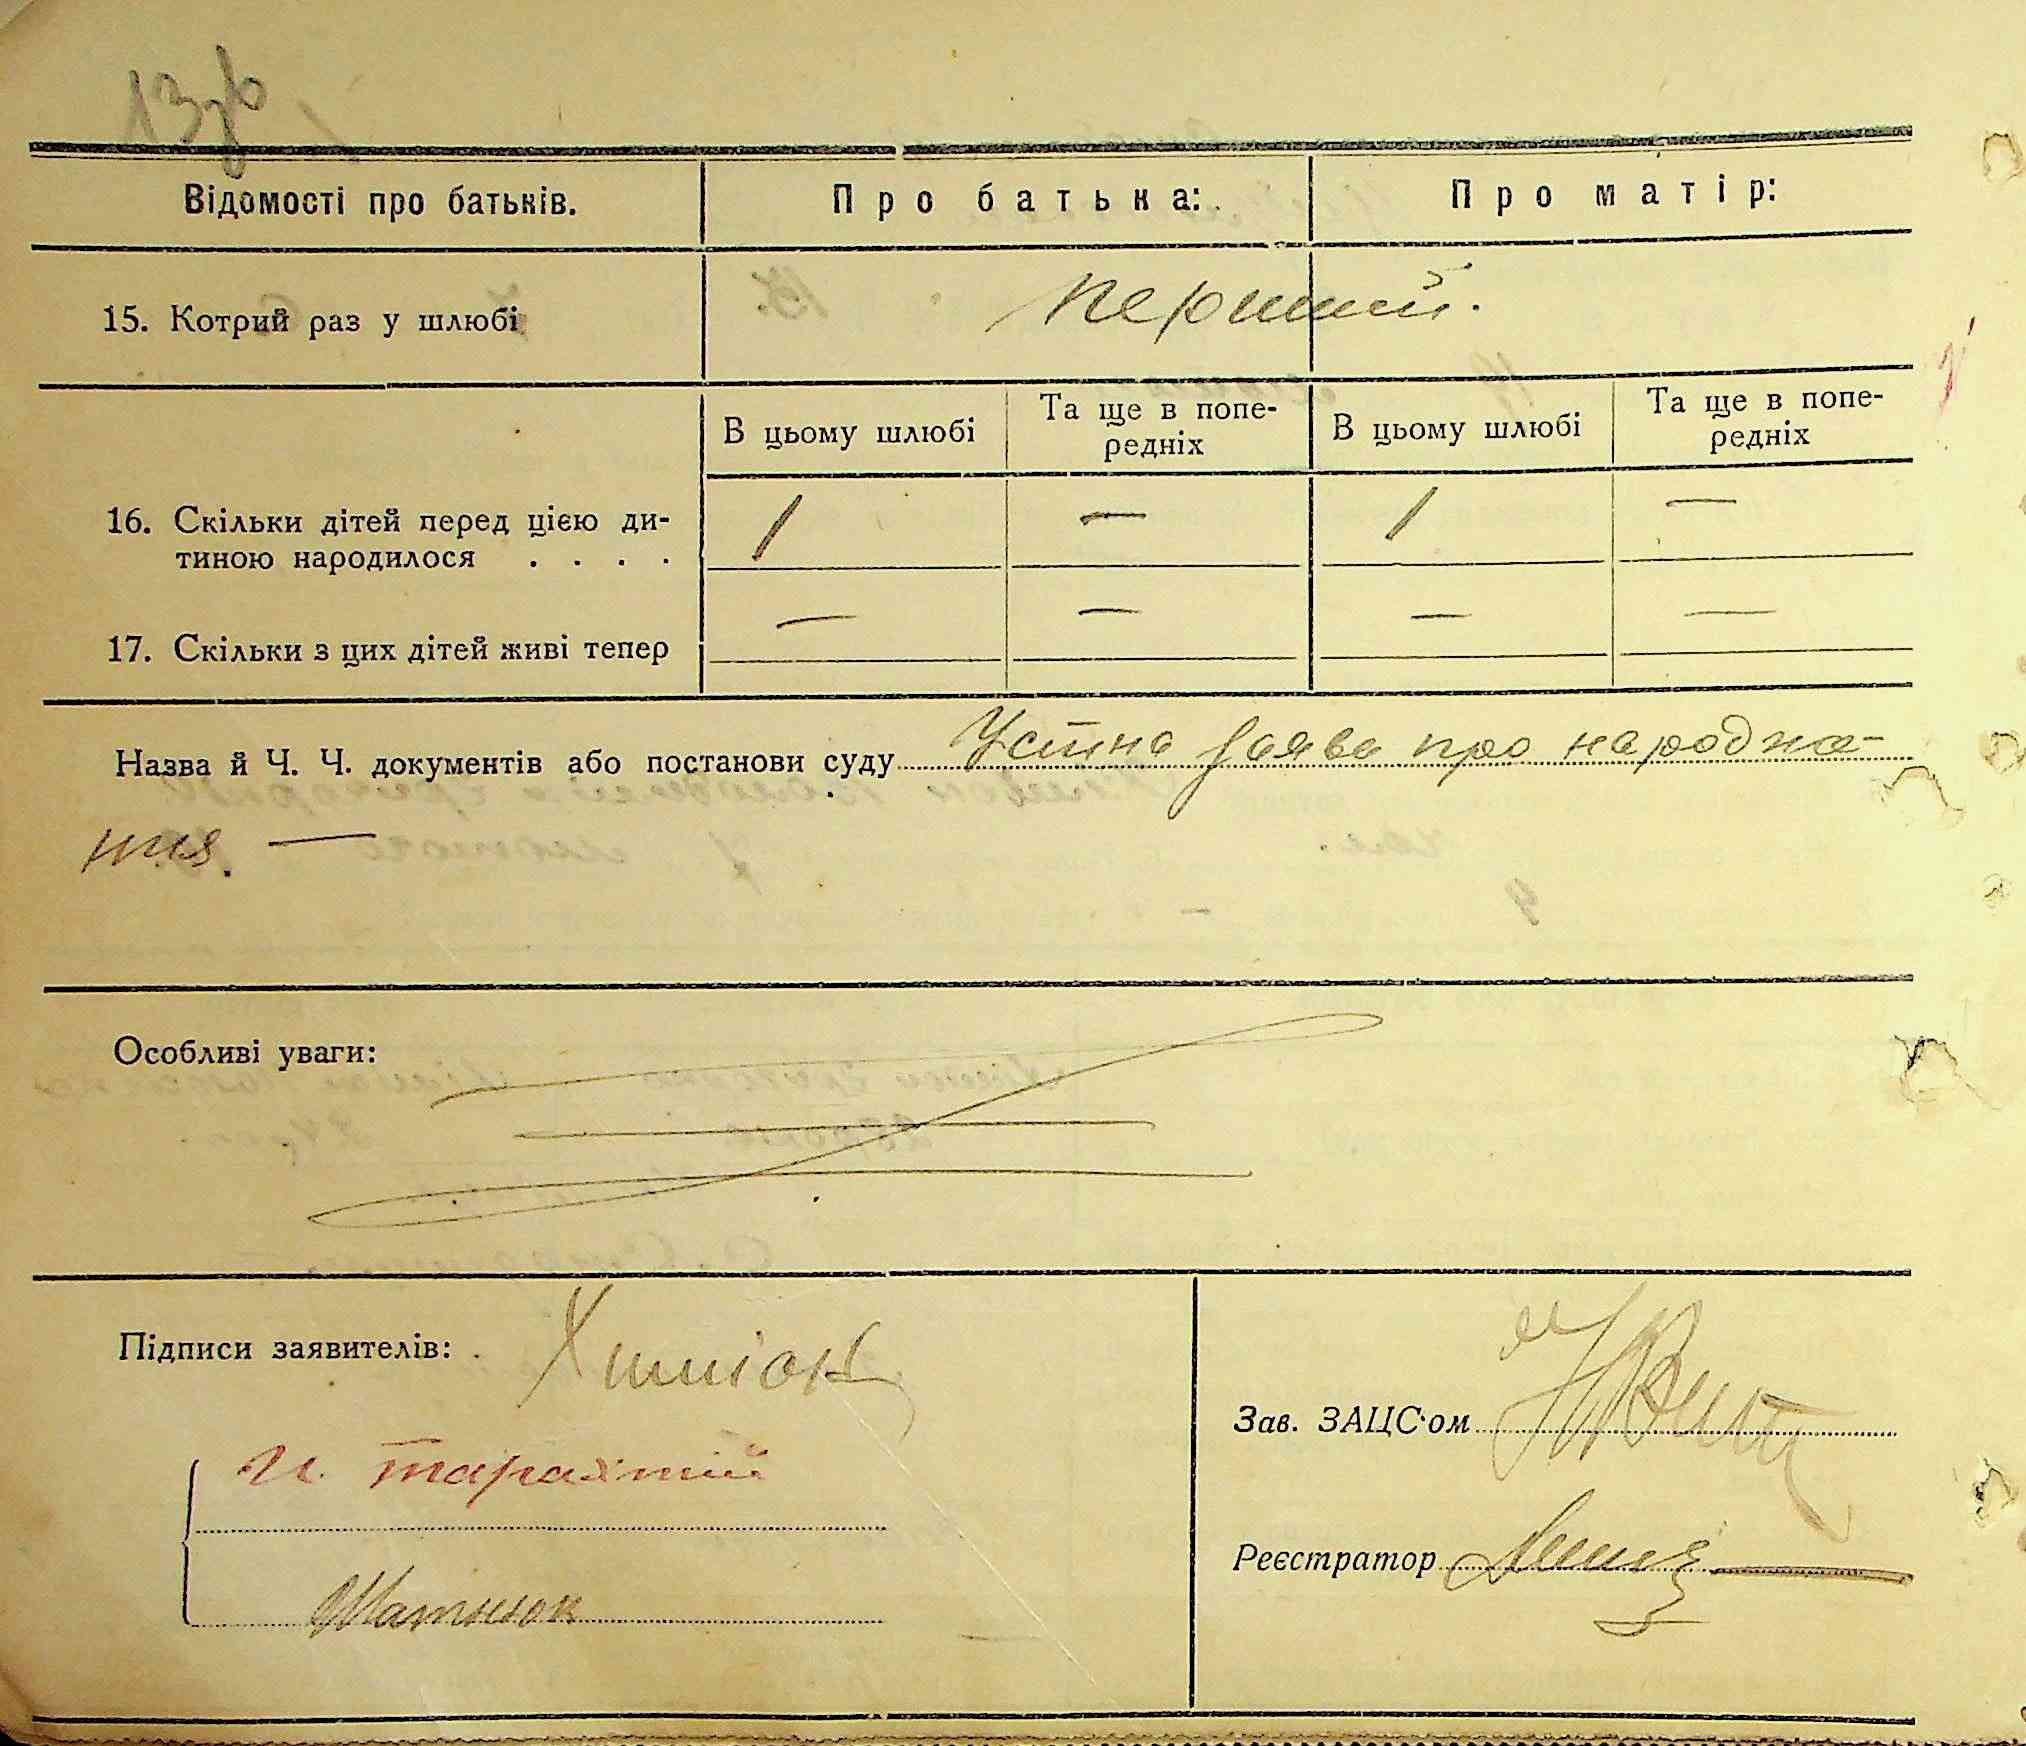 13зв
Відомості про батьків. Про батька: Про матір:
15. Котрий раз у шлюбі перший.
В цьому шлюбі Та ще в попе- В цьому шлюбі Та ще в попе-
редніх редніх
16. Скільки дітей перед цією ди- 1 — 1 —
тиною народилося . . . .
17. Скільки з цих дітей живі тепер — — — —
Назва й Ч. Ч. документів або постанови суду Устна заява про народже-
ння. —
Особливі уваги:
Підписи заявителів:
Зав. ЗАЦС'ом
Реєстратор